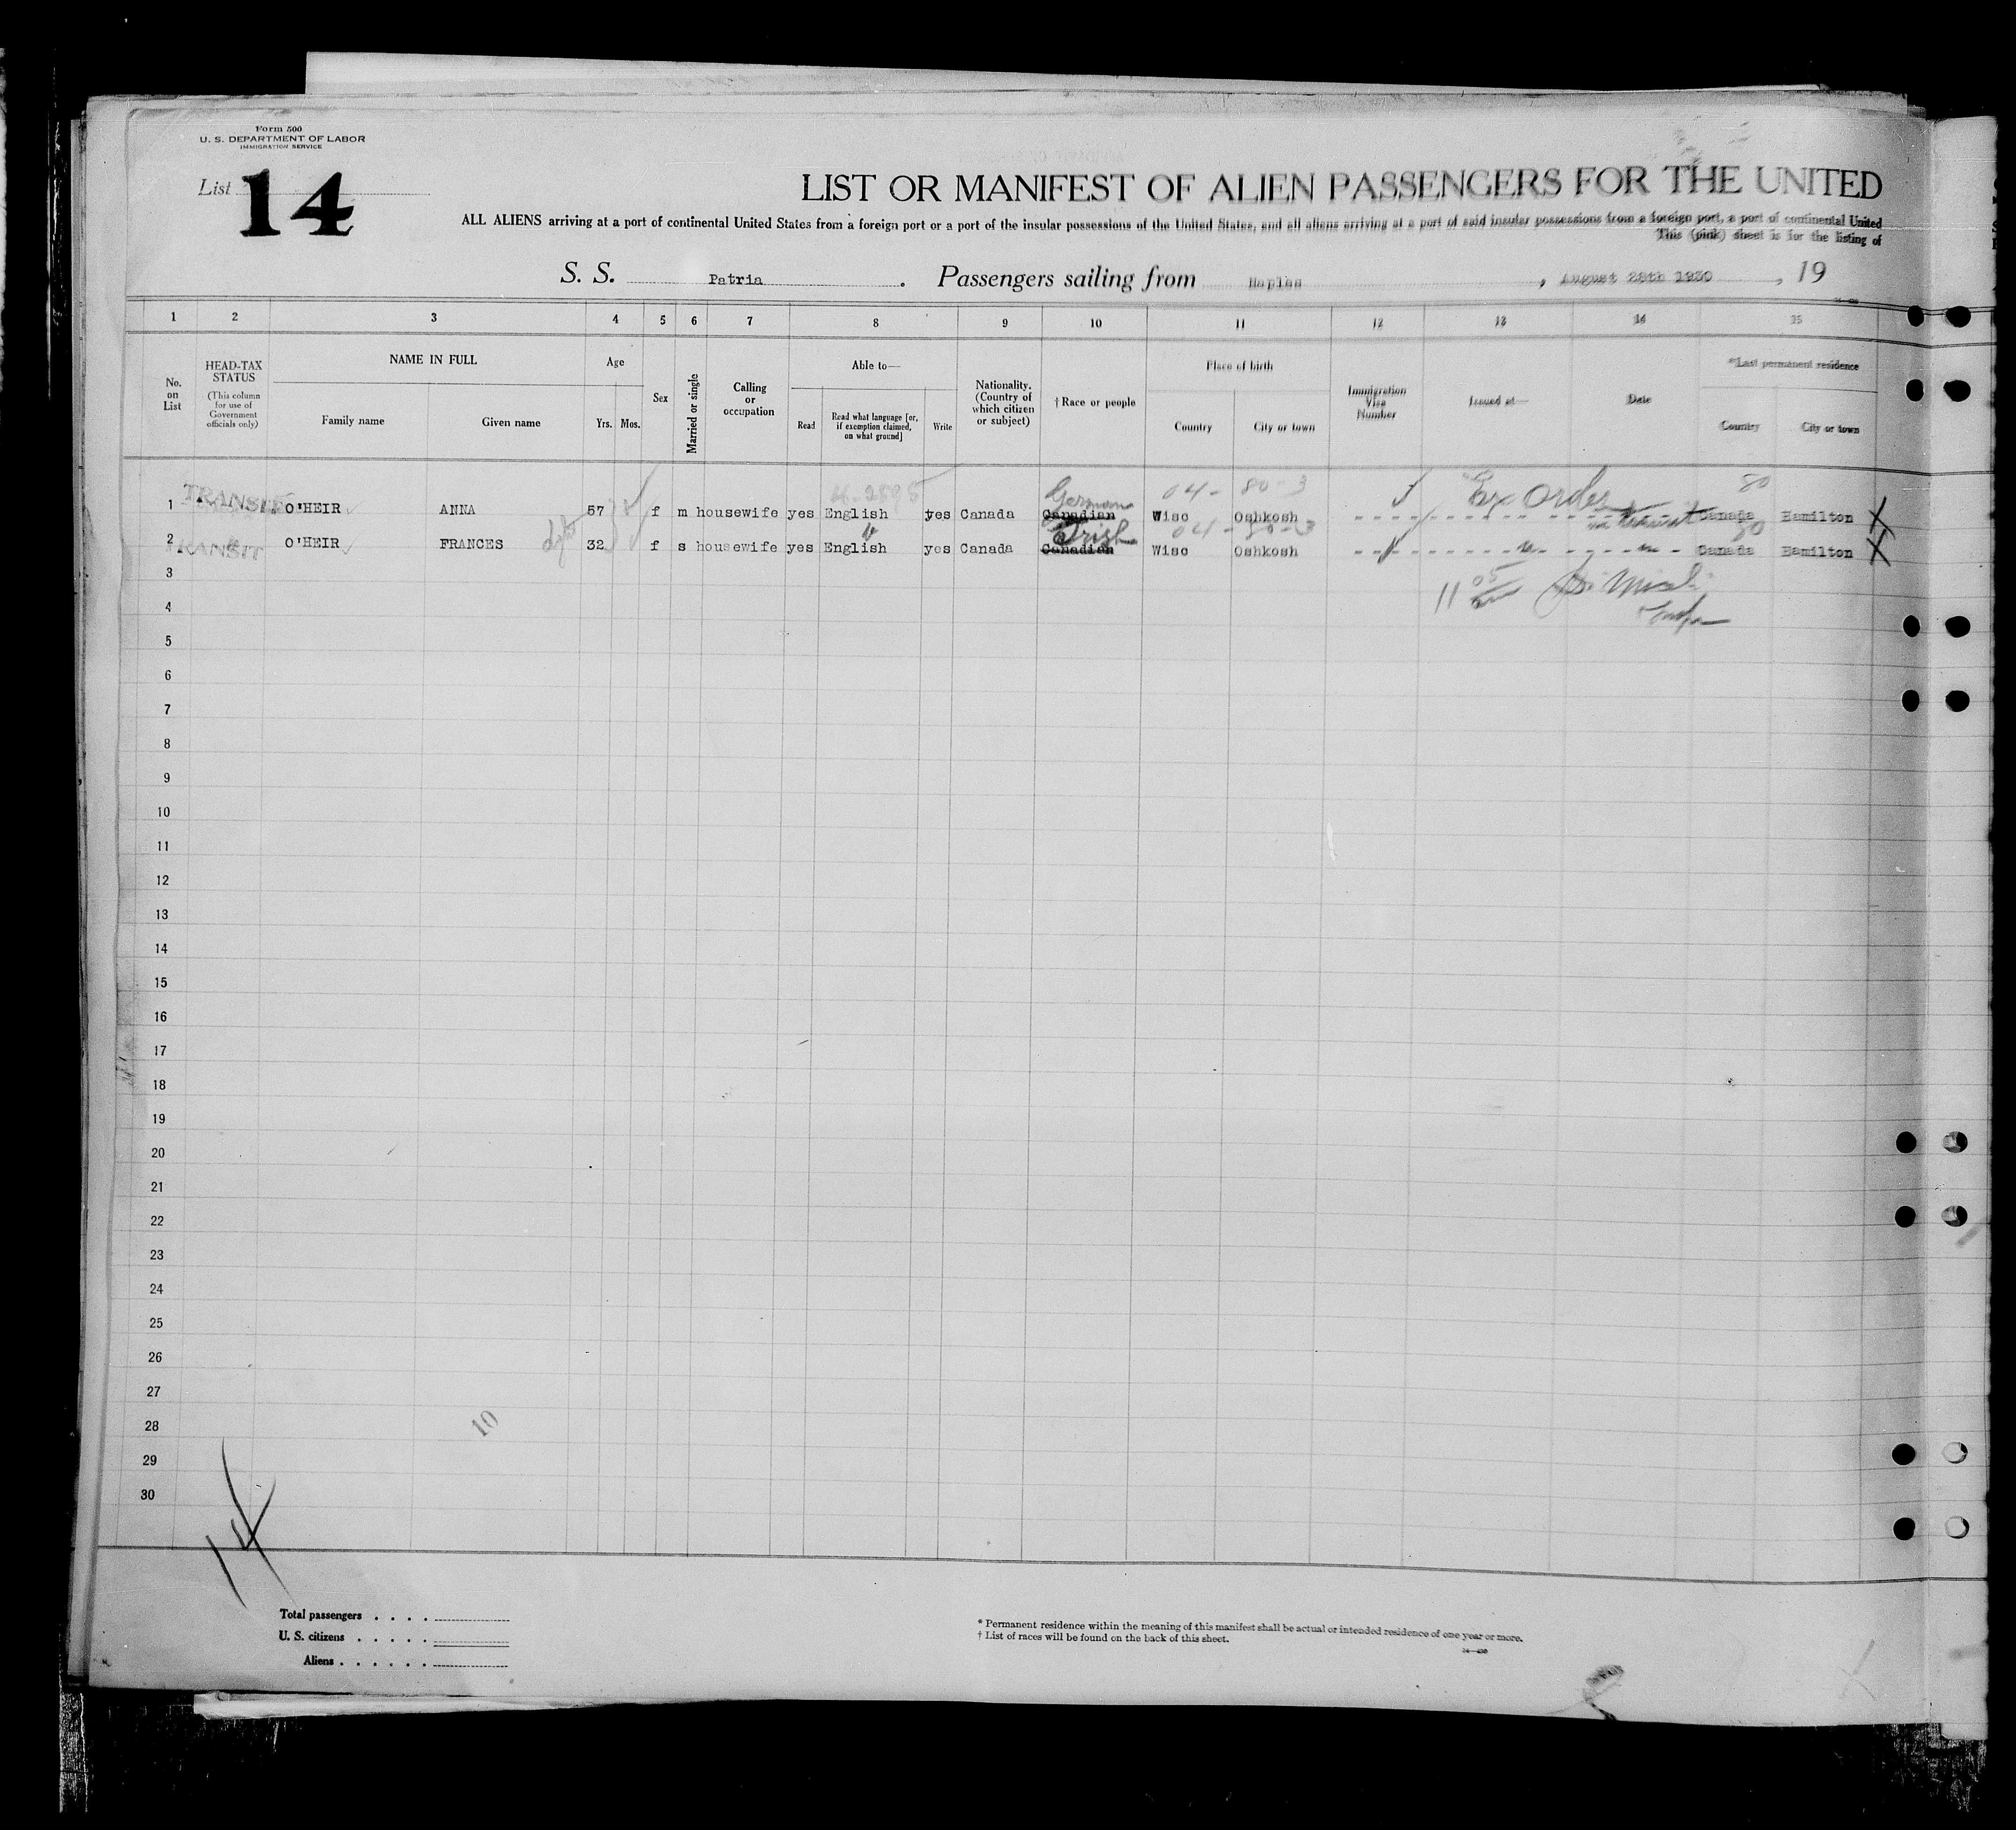 Form 500
U. S. DEPARTMENT OF LABOR
IMMIGRATION SERVICE
List 14
LIST OR MANIFEST OF ALIEN PASSENGERS FOR THE UNITED
ALL ALIENS arriving at a port of continental United States from a foreign port or a port of the insular possessions of the United States, and all aliens arriving at a port of said insular possessions from a foreign port, a port of continental United
This (pink) sheet is for the listing of
S. S. Patria. Passengers sailing from Naples, August 28th 1930, 19
1 2 3 4 5 6 7 8 9 10 11 12 13 14 15
No. on List
HEAD-TAX STATUS
(This column for use of Government officials only)
NAME IN FULL
Family name Given name
Age
Yrs. Mos.
Sex
Married or single
Calling or occupation
Able to—
Read
Read what language [or, if exemption claimed, on what ground]
Write
Nationality. (Country of which citizen or subject)
† Race or people
Place of birth
Country City or town
Immigration Visa Number
Issued at—
Date
*Last permanent residence
Country City or town
04- 80-3 80
German Ex Order
1 TRANSIT O'HEIR ANNA 57 f m housewife yes English yes Canada Canadian Wisc Oshkosh - - - - Canada Hamilton X
in transit
Irish
2 TRANSIT O'HEIR FRANCES 32 f s housewife yes English yes Canada Canadian Wisc Oshkosh - - - - Canada Hamilton X
3
4
5
6
7
8
9
10
11
12
13
14
15
16
17
18
19
20
21
22
23
24
25
26
27
28
10
29
30
14
Total passengers . . . .
U. S. citizens . . . . .
Aliens . . . . . .
* Permanent residence within the meaning of this manifest shall be actual or intended residence of one year or more.
† List of races will be found on the back of this sheet.